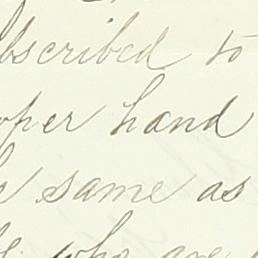 bscribed to
oper hand
same as
who are